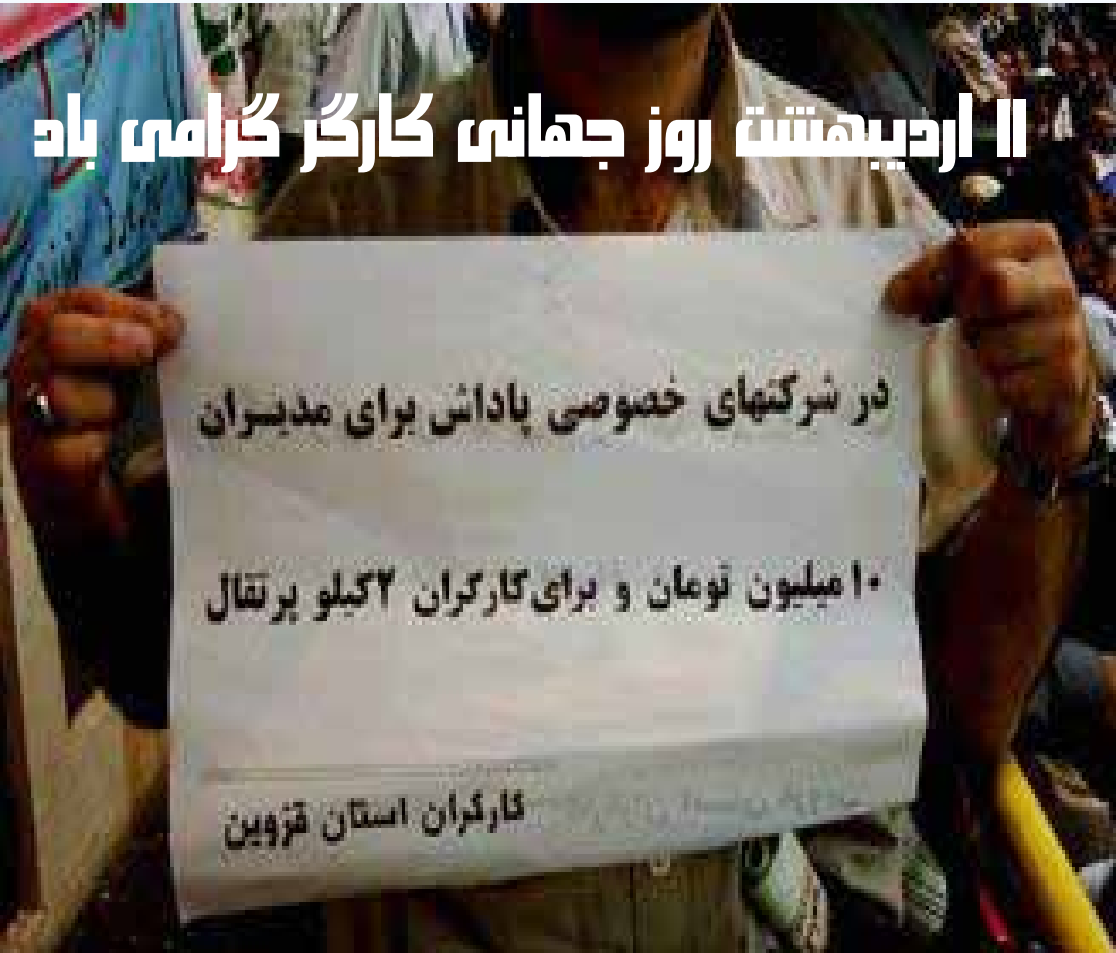 ۱۱ اردیبهشت روز جهانی کارگر گرامی باد
در شرکتهای خصوصی پاداش برای مدیران
۱۰ میلیون تومان و برای کارگران ۲ کیلو پرتقال
کارگران استان قزوین